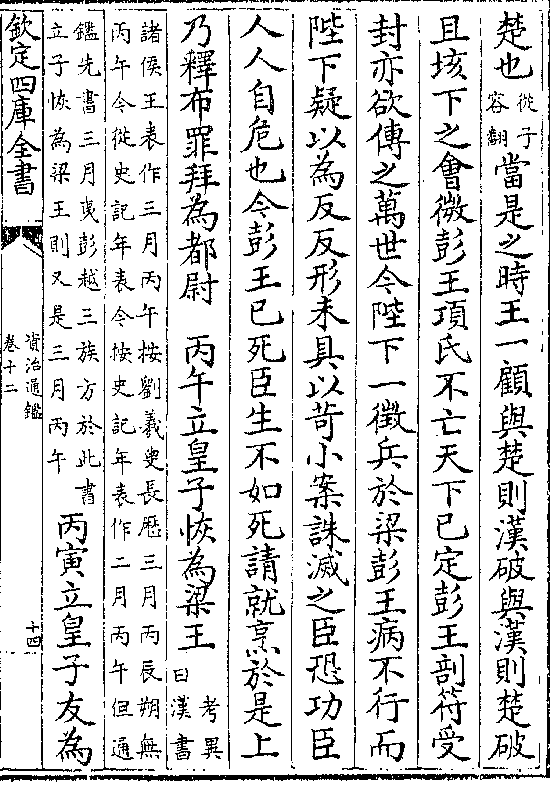 楚也從子容翻當是之時王一顧與楚則漢破與漢則楚破
且垓下之會微彭王項氏不亡天下已定彭王剖符受
封亦欲傳之萬世令陛下一徵兵於梁彭王病不行而
陛下疑以為反反形未具以苛小案誅滅之臣恐功臣
人人自危也令彭王已死臣生不如死請就烹於是上
乃釋布罪拜為都尉　丙午立皇子恢為梁王考異曰漢書
諸侯王表作三月丙午按劉羲叟長厯三月丙辰朔無
丙午令從史記年表令按史記年表作二月丙午但通
鑑先書三月夷彭越三族方於此書
立子恢為梁王則又是三月丙午
丙寅立皇子友為
欽定四庫全書
資治通鑑
卷十二
十四